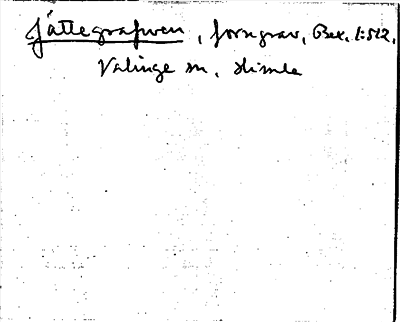 Jättegrafwen, forngrav, Bex. 1:512,
Valinge sn, Himle